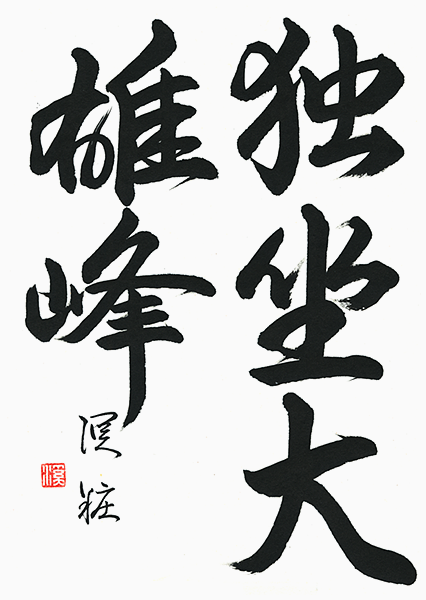 独坐大
雄峰